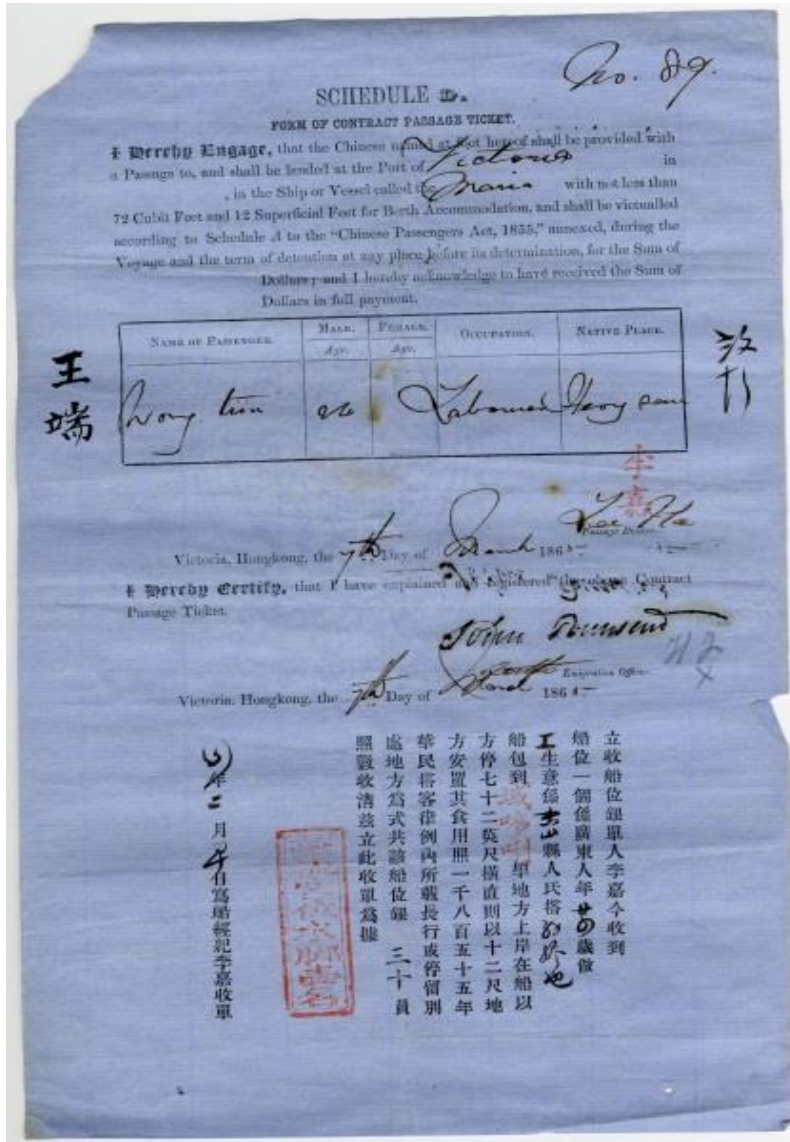 No. 89.
SCHEDULE D.
FORM OF CONTRACT PASSAGE TICKET.
I Hereby Engage, that the Chinese named at foot hereof shall be provided with
a Passage to, and shall be landed at the Port of Victoria in
, in the Ship or Vessel called the Maria with not less than
72 Cubit Feet and 12 Superficial Feet for Berth Accommodation, and shall be victualled
according to Schedule A to the "Chinese Passengers Act, 1855," annexed, during the
Voyage and the term of detention at any place before its determination, for the Sum of
Dollars; and I hereby acknowledge to have received the Sum of
Dollars in full payment.
NAME OF PASSENGER. MALE. FEMALE. OCCUPATION. NATIVE PLACE.
Age. Age.
王端
Wong
李嘉
Passage Broker.
Victoria, Hongkong, the 7th Day of March 1865
I Hereby Certify, that I have explained and registered the above Contract
Passage Ticket.
John
Emigration Officer
Victoria, Hongkong, the 7th Day of March 1865
立收船位銀單人李嘉今收到
船位一個係廣東人年歲做
工生意係縣人氏搭
船包到埠地方上岸在船以
方停七十二英尺橫直則以十二尺地
方安置其食用照一千八百五十五年
華民搭客律例內所載長行或停留別
處地方為式共該船位銀 三十員
照數收清茲立此收單為據
年二月日寫船經紀李嘉收單